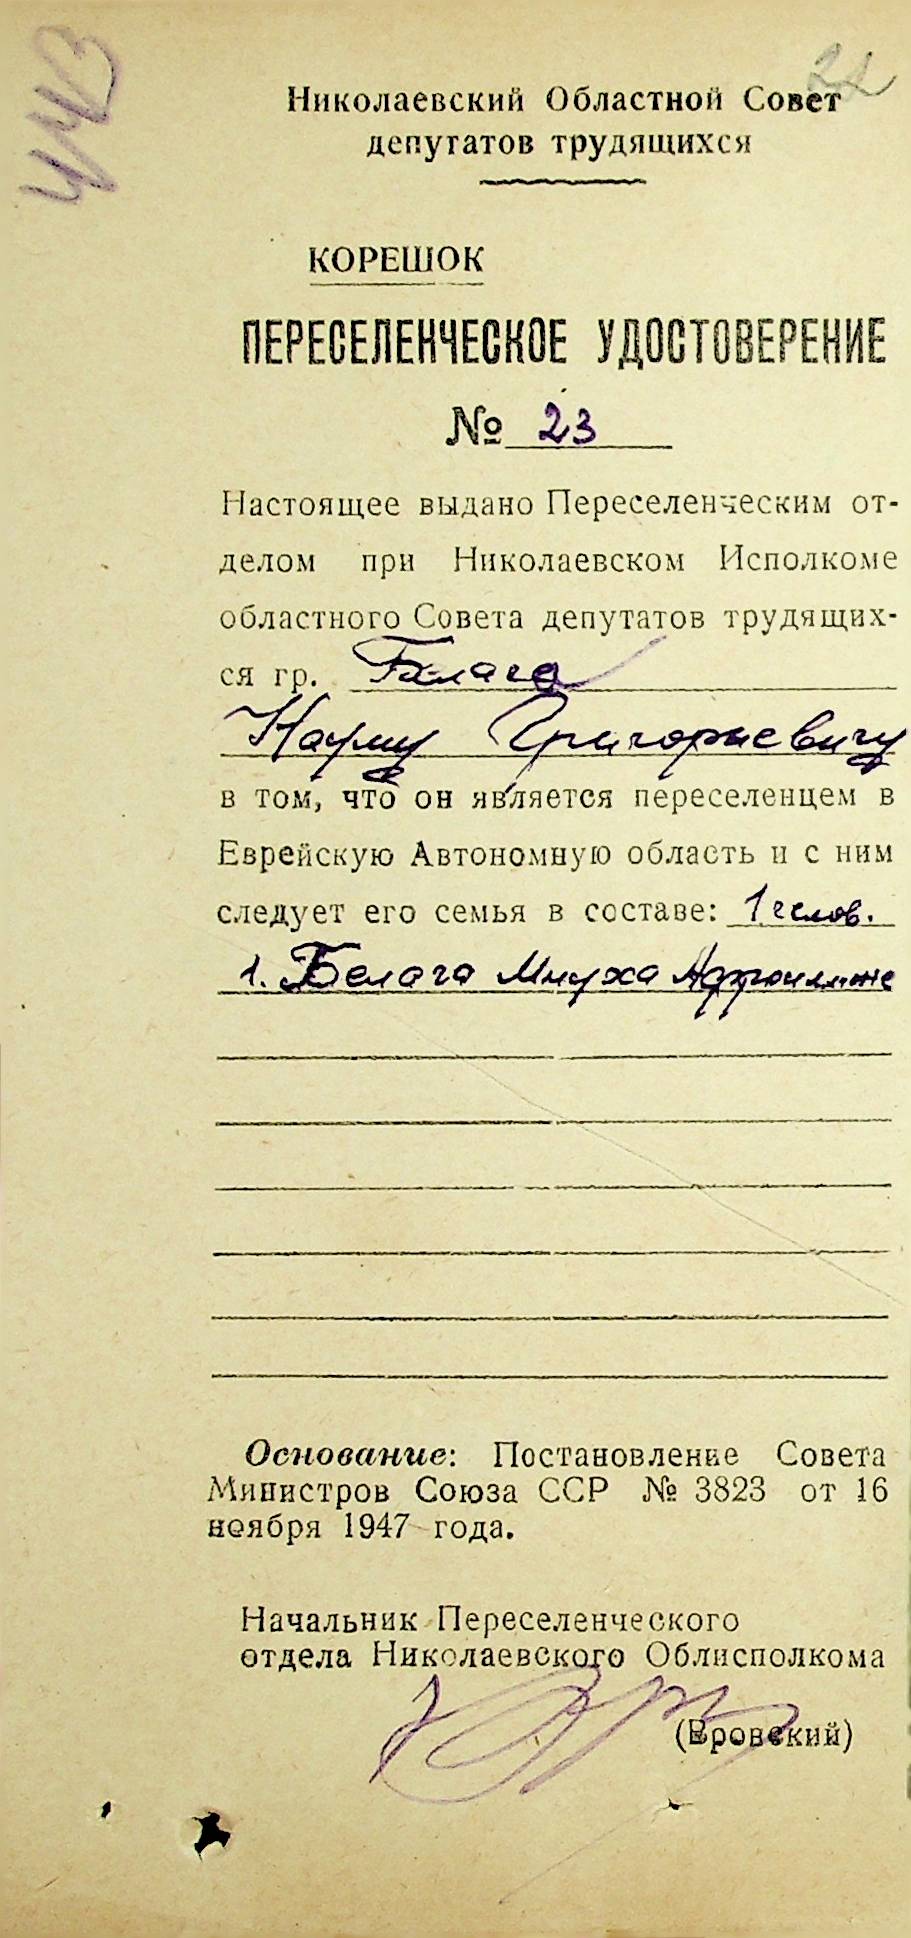 22
ИМЗ
Николаевский Областной Совет
депутатов трудящихся
КОРЕШОК
ПЕРЕСЕЛЕНЧЕСКОЕ УДОСТОВЕРЕНИЕ
№ 23
Настоящее выдано Переселенческим от-
делом при Николаевском Исполкоме
областного Совета депутатов трудящих-
ся гр. Белага
Науму Григорьевичу
в том, что он является переселенцем в
Еврейскую Автономную область и с ним
следует его семья в составе: 1 челов.
1. Белага Мнуха
Основание: Постановление Совета
Министров Союза ССР № 3823 от 16
ноября 1947 года.
Начальник Переселенческого
отдела Николаевского Облисполкома
(Вровский)